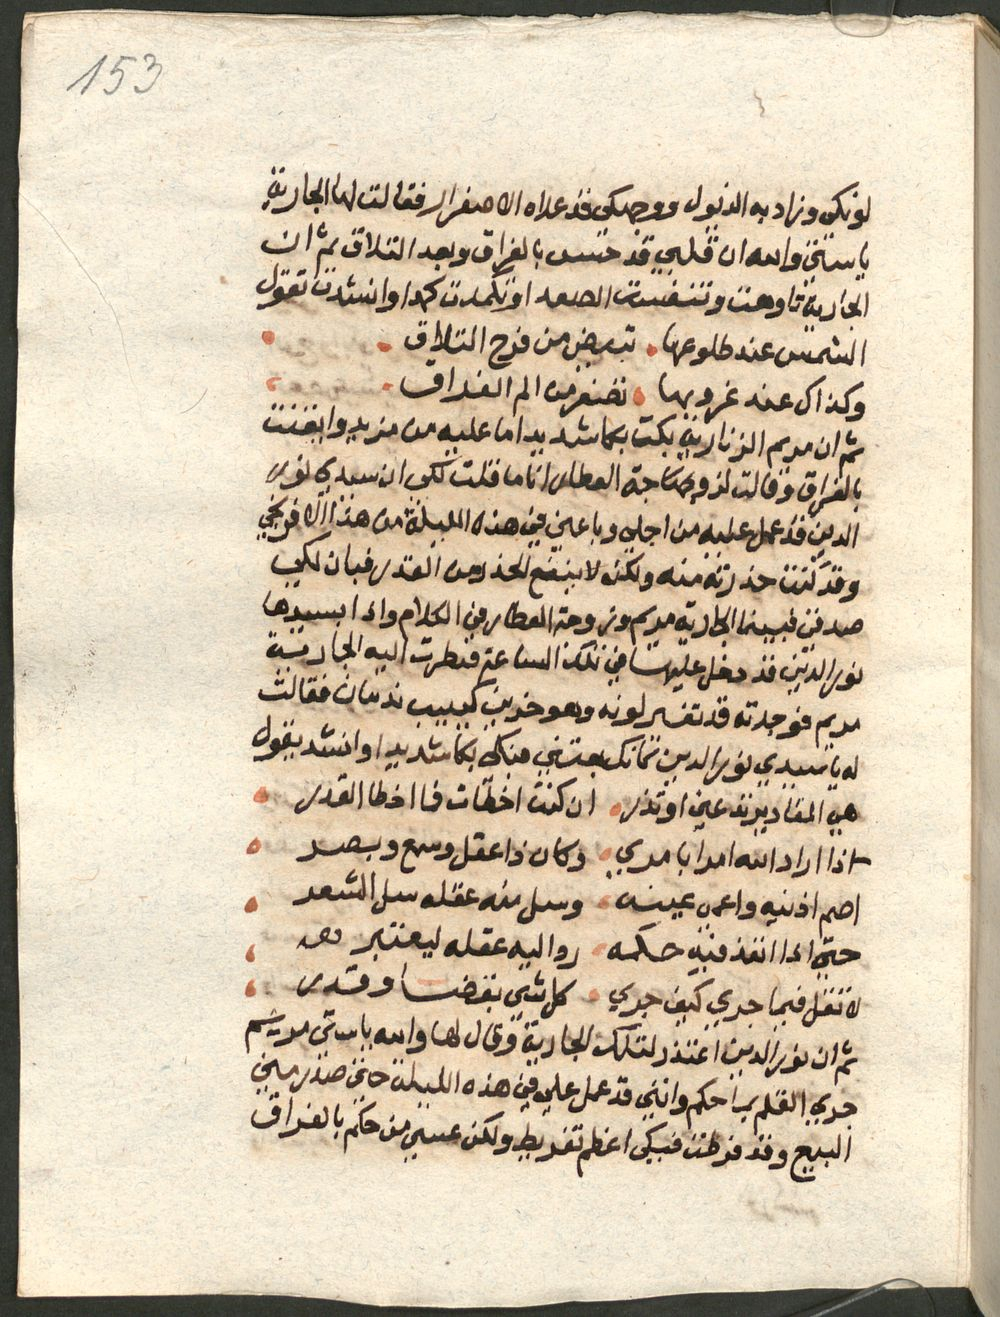 153
لونكي وزاد به الذبول ووجهكي قد علاه الاصفرار فقالت لها الجارية
يا ستي والله ان قلبي قد حسس بالفراق وبعد التلاق ثم ان
الجارية تاوهت وتنفست الصعدا وتكمدت كمدا وانشدت تقول
الشمس عند طلوعها تبيض من فرح التلاق
وكذاك عند غروبها تصفر من الم الفراق
ثم ان مريم الزنارية بكت بكا شديدا ما عليه من مزيد وايقنت
بالفراق وقالت لزوجة العطار انا ما قلت لكي ان سيدي نور
الدين قد عمل عليه من اجلي وباعني في هذه الليلة من هذا الافرنجي
وقد كنت حذرته منه ولكن لا ينفع الحذر من القدر فبان لكي
صدقي فبينما الجارية مريم وزوجة العطار في الكلام واذا بسيدها
نور الدين قد دخل عليها في تلك الساعة فنظرت اليه الجارية
مريم فوجدته قد تغير لونه وهو حزين كييب ندمان فقالت
له يا سيدي نور الدين كانك بعتني فبكي بكا شديدا وانشد يقول
هي المقادير فدعني او تذر ان كنت اخطات فما اخطا القدر
اذا اراد الله امرا بامري وكان ذا عقل وسمع وبصر
اصم اذنيه واعمي عينه وسل منه عقله سل الشعر
حتي اذا انفذ فيه حكمه رد اليه عقله ليعتبر
لا تقل فيما جري كيف جري كل شي بقضا وقدر
ثم ان نور الدين اعتذر لتلك الجارية وقال لها والله يا ستي مريم
جري القلم بما حكم وانني قد عمل علي في هذه الليلة حتي صدر مني
البيع وقد فرطت فيكي اعظم تفريط ولكن عسي من حكم بالفراق